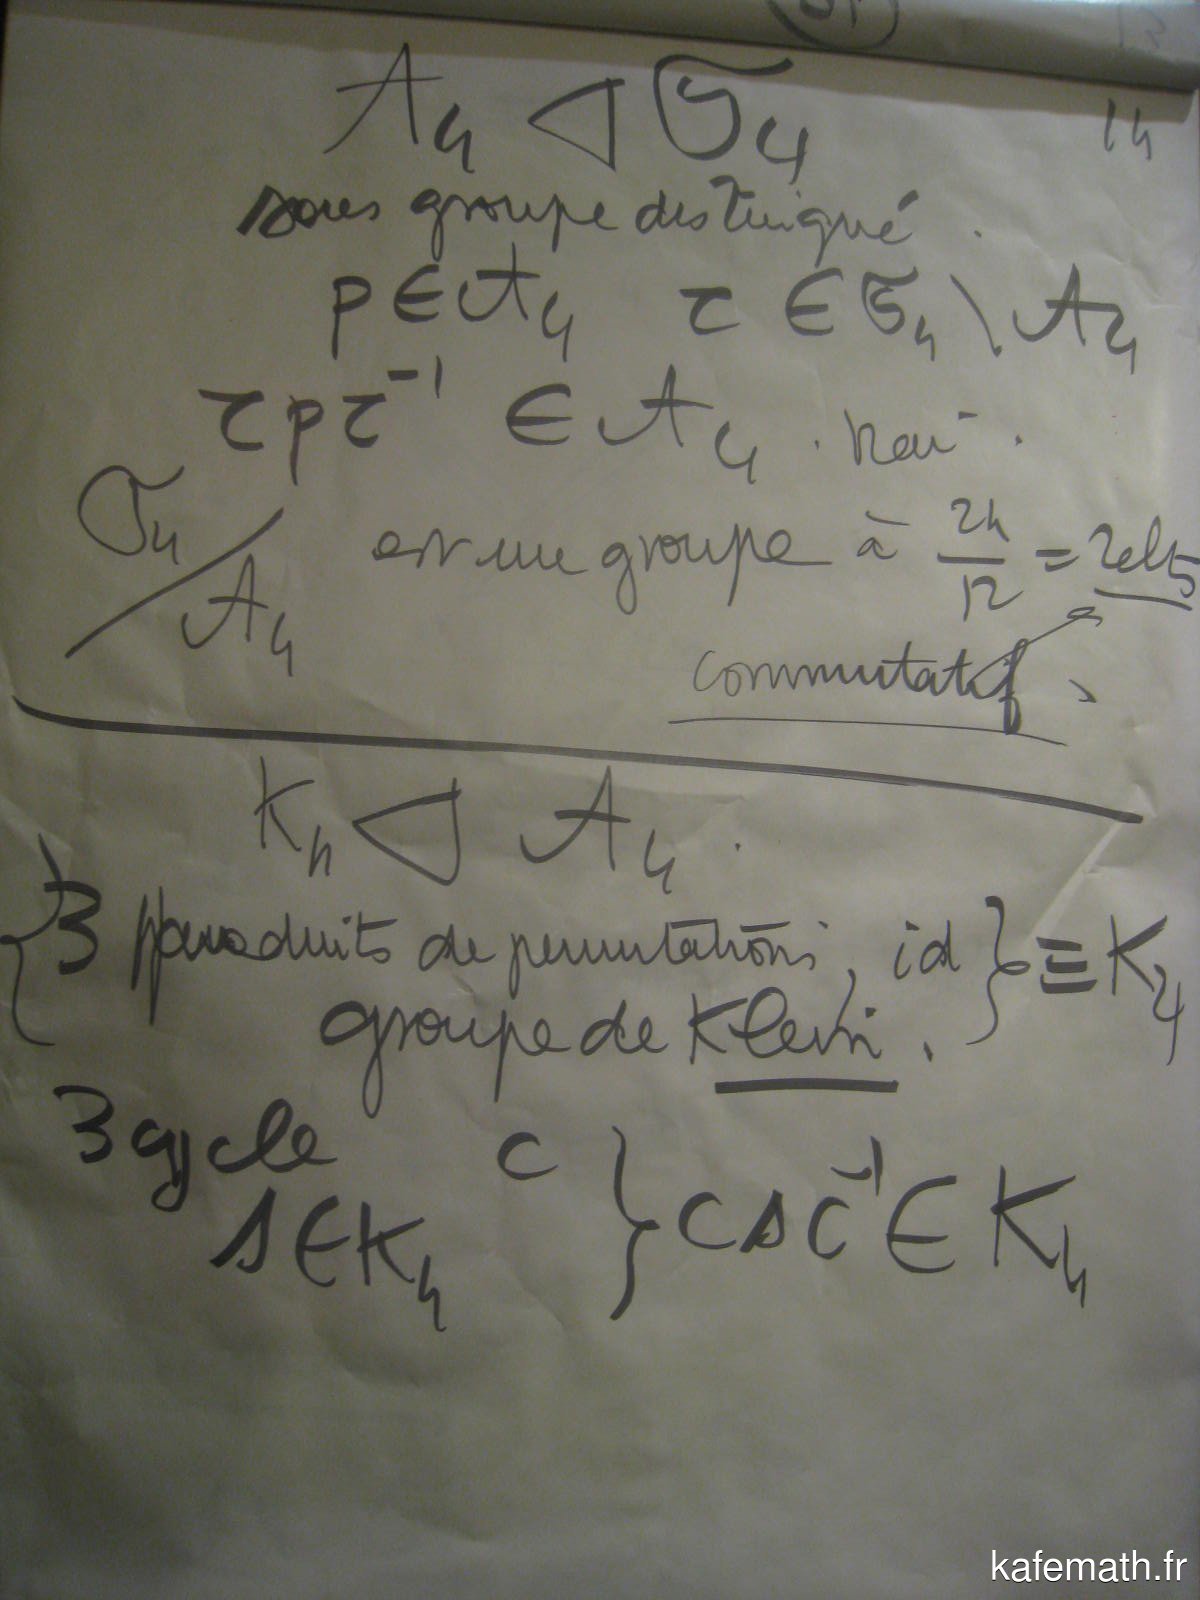 A₄ ◁ 𝔖₄
14
sous groupe distingué.
p ∈ A₄ τ ∈ 𝔖₄ \ A₄
τpτ⁻¹ ∈ A₄.
𝔖₄/A₄ est un groupe à 24/12 = 2 elts
commutatif.
K₄ ◁ A₄.
{3 produits de permutations, id} ≡ K₄
groupe de Klein.
3 cycle c
s ∈ K₄ } c s c⁻¹ ∈ K₄
kafemath.fr